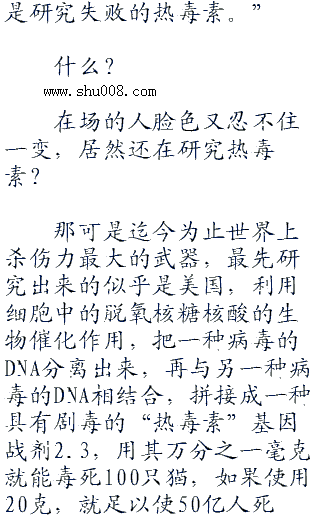 是研究失败的热毒素。”
什么？
www.shu008.com
在场的人脸色又忍不住
一变，居然还在研究热毒
素？
那可是迄今为止世界上
杀伤力最大的武器，最先研
究出来的似乎是美国，利用
细胞中的脱氧核糖核酸的生
物催化作用，把一种病毒的
DNA分离出来，再与另一种病
毒的DNA相结合，拼接成一种
具有剧毒的“热毒素”基因
战剂2.3，用其万分之一毫克
就能毒死100只猫，如果使用
20克，就足以使50亿人死